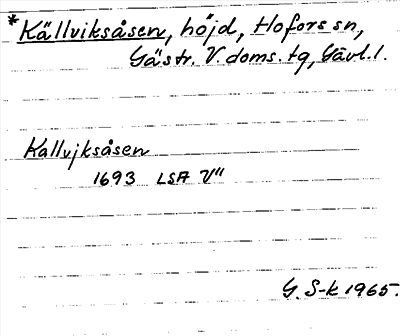 *Källviksåsen, höjd, Hofors sn,
Gästr. V. doms. tg, Gävl. l.
Kallvjksåsen
1693 LSA V"
G. S-k 1965.